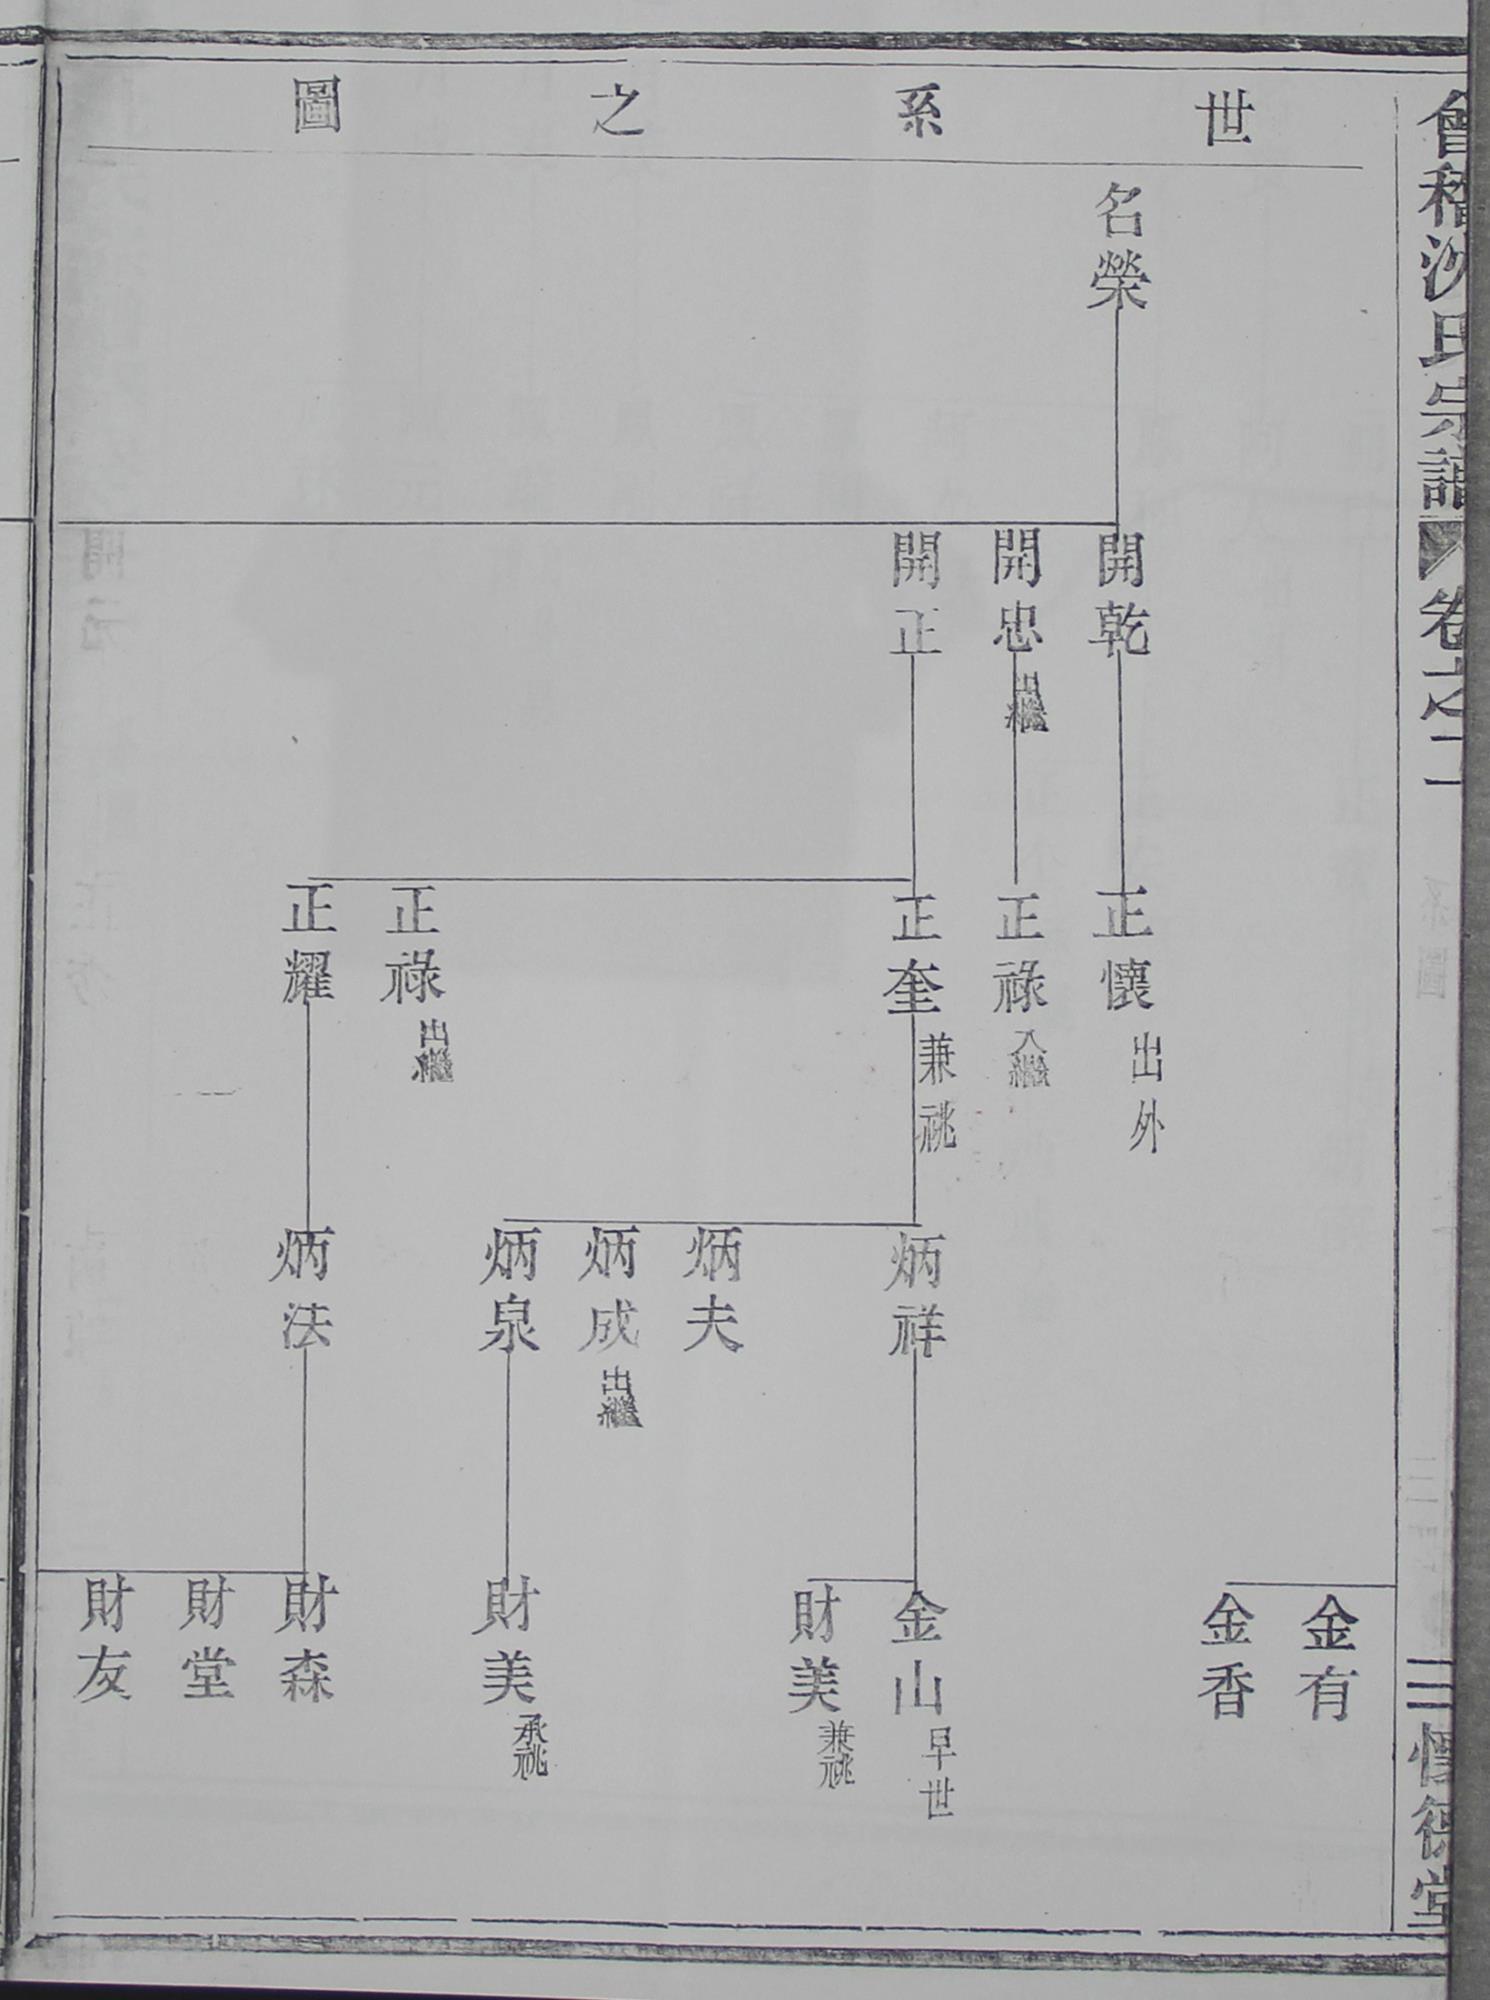 會稽沈氏宗譜 卷之二
三 懷德堂
世系之圖
名榮
開乾
開忠 出繼
開正
正懷 出外
正祿 入繼
正奎 兼祧
正祿 出繼
正耀
炳祥
炳夫
炳成 出繼
炳泉
炳法
金有
金香
金山 早世
財美 兼祧
財美 承祧
財森
財堂
財友